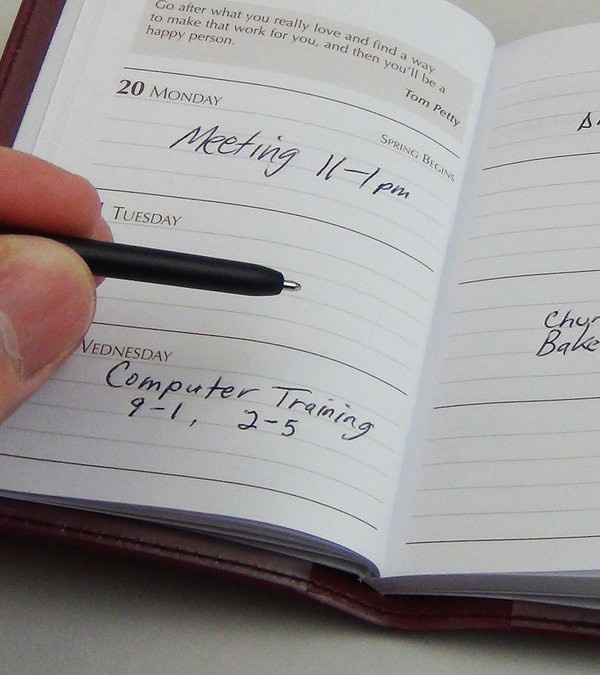 Go after what you really love and find a way
to make that work for you, and then you'll be a
happy person.
Tom Petty
20 MONDAY
SPRING BEGINS
Meeting 11-1pm
TUESDAY
WEDNESDAY
Computer Training
9-1, 2-5